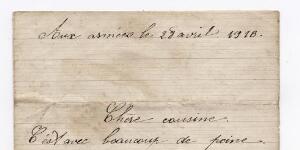 Aux armées le 28 avril 1918.
Chère cousine.
C'est avec beaucoup de peine